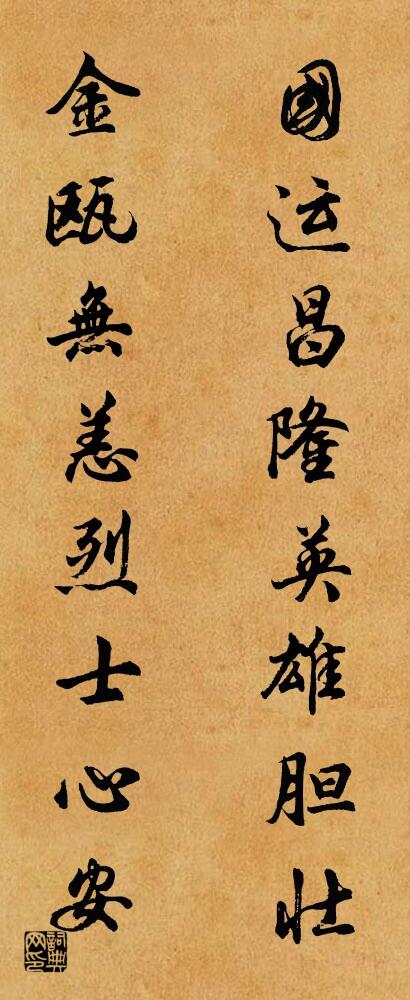 國运昌隆英雄胆壮
金瓯無恙烈士心安
詞典网印